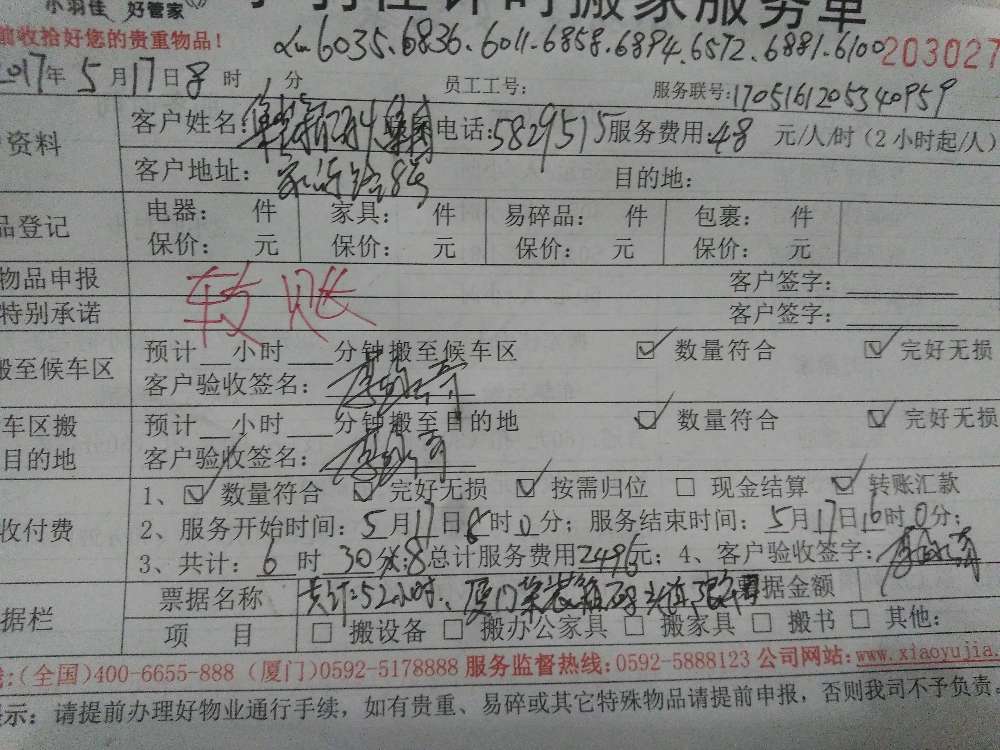 小羽佳 好管家 时搬家服务单
前收拾好您的贵重物品!
6035.6836.6011.6858.6894.6572.6881.6100 203027
2017年5月17日8时 分 员工工号: 服务联号:170516120534 0959
资料 客户姓名: 电话:5829515 服务费用:48 元/人/时(2小时起/人)
客户地址: 8号 目的地:
品登记 电器: 件 家具: 件 易碎品: 件 包裹: 件
保价: 元 保价: 元 保价: 元 保价: 元
物品申报 转账 客户签字:
特别承诺 客户签字:
搬至候车区 预计__小时___分钟搬至候车区 ☑ 数量符合 ☑ 完好无损
客户验收签名:
车区搬 预计__小时___分钟搬至目的地 ☑ 数量符合 ☑ 完好无损
目的地 客户验收签名:
收付费 1、☑ 数量符合 ☑ 完好无损 ☑ 按需归位 □ 现金结算 ☑ 转账汇款
2、服务开始时间:5月17日8时0分;服务结束时间:5月17日16时0分;
3、共计:6时30分×8总计服务费用2496元;4、客户验收签字:
据栏 票据名称 共计:52小时、厦门 票据金额
项 目 □ 搬设备 □ 搬办公家具 □ 搬家具 □ 搬书 □ 其他:
:(全国)400-6655-888 (厦门)0592-5178888 服务监督热线:0592-5888123 公司网站:www.xiaoyujia.
示:请提前办理好物业通行手续,如有贵重、易碎或其它特殊物品请提前申报,否则我司不予负责。